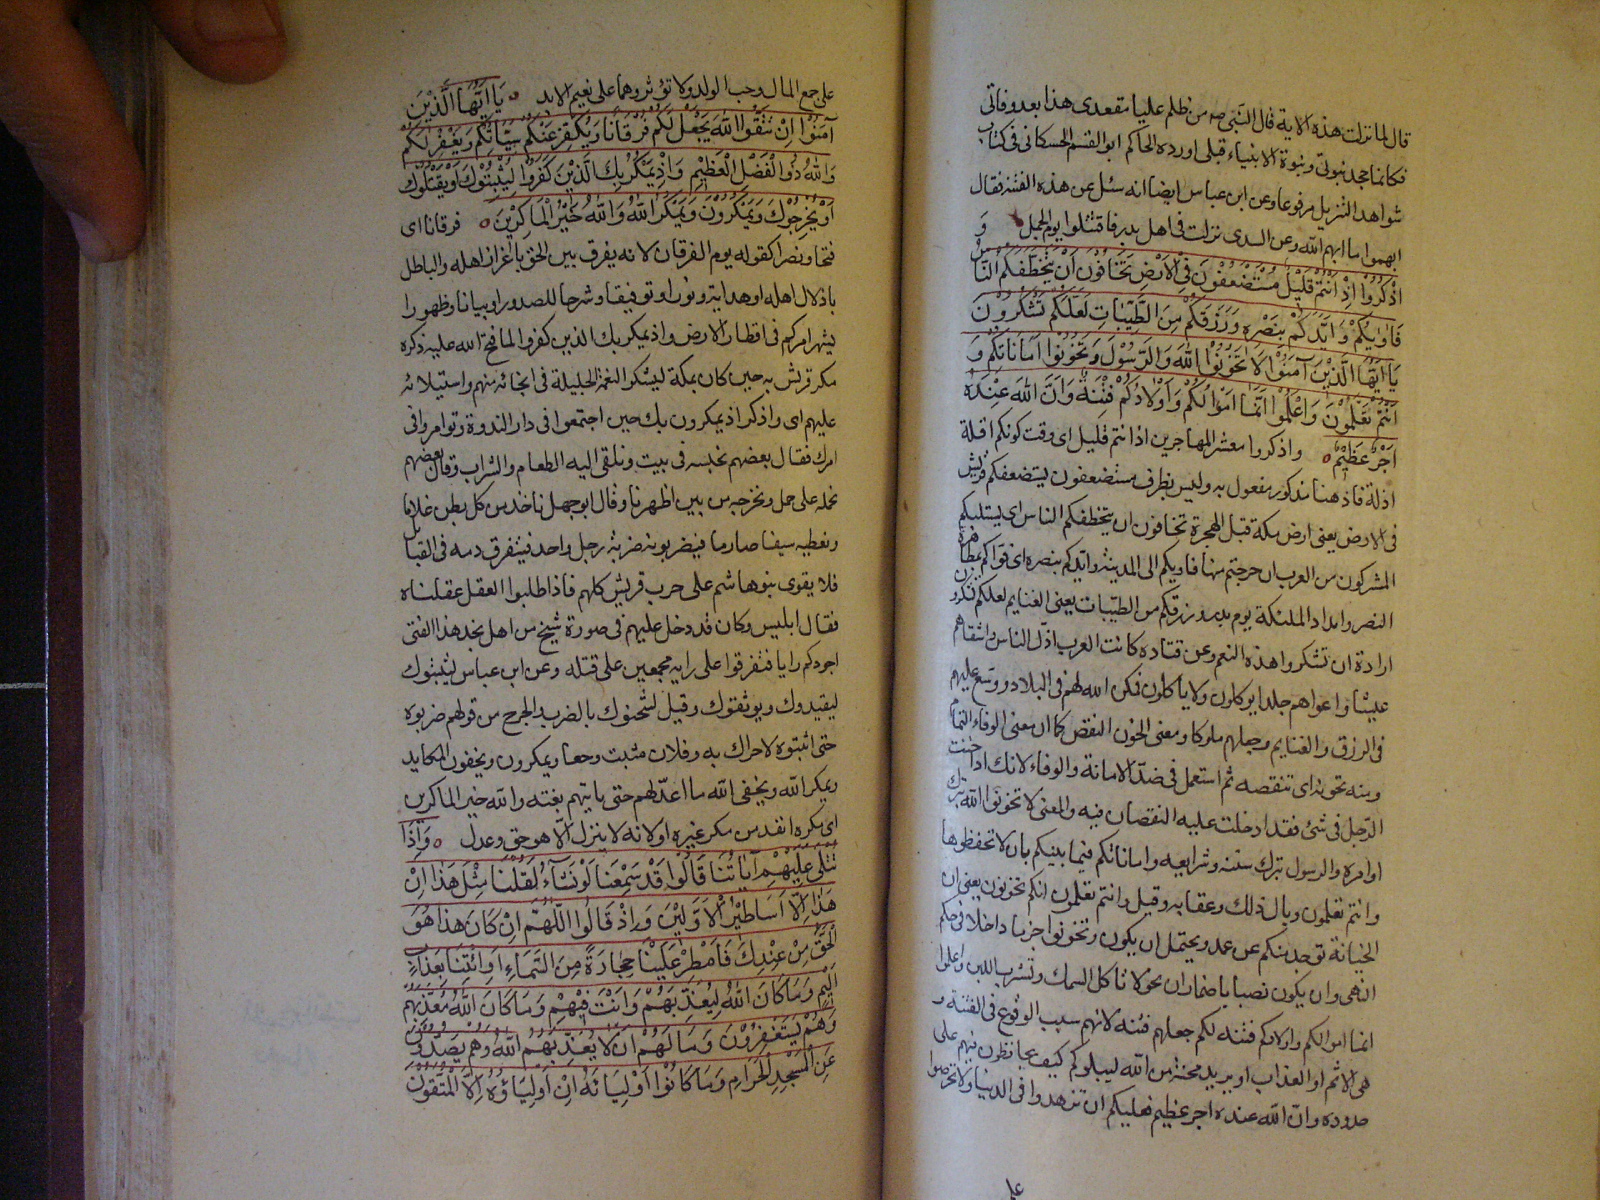 قال لما نزلت هذه الاية قال النبي صه من ظلم عليا مقعدى هذا بعد وفاتى
فكانما جحد نبوتى ونبوة الانبياء قبلى اورده الحاكم ابو القسم الحسكانى فى كتاب
شواهد التنزيل مرفوعا وعن ابن عباس ايضا انه سئل عن هذه الفتنة فقال
ابهموا ما ابهم الله وعن السدى نزلت فى اهل بدر فاقتتلوا يوم الجمل وَ
اذْكُرُوا اِذْ اَنْتُمْ قَلِيْلٌ مُسْتَضْعَفُوْنَ فِى الْاَرْضِ تَخَافُوْنَ اَنْ يَتَخَطَّفَكُمُ النَّاسُ
فَاٰوٰيكُمْ وَاَيَّدَكُمْ بِنَصْرِهِ وَرَزَقَكُمْ مِنَ الطَّيِّبَاتِ لَعَلَّكُمْ تَشْكُرُوْنَ
يَا اَيُّهَا الَّذِيْنَ آمَنُوْا لَا تَخُوْنُوا اللهَ وَالرَّسُوْلَ وَتَخُوْنُوْا اَمَانَاتِكُمْ وَ
اَنْتُمْ تَعْلَمُوْنَ وَاعْلَمُوا اَنَّمَا اَمْوَالُكُمْ وَاَوْلَادُكُمْ فِتْنَةٌ وَاَنَّ اللهَ عِنْدَهُ
اَجْرٌ عَظِيْمٌ واذكروا معشر المهاجرين اذ انتم قليل اى وقت كونكم اقلة
اذلة فاذ هنا مذكور مفعول به وليس بظرف مستضعفون يستضعفكم قريش
فى الارض يعنى ارض مكة قبل الهجرة تخافون ان يتخطفكم الناس اى يستلبكم
المشركون من العرب ان خرجتم منها فاويكم الى المدينة وايدكم بنصره اى قواكم بمظاهرة
النصر وامداد الملئكة يوم بدر ورزقكم من الطيبات يعنى الغنايم لعلكم تشكرون
ارادة ان تشكروا هذه النعم وعن قتادة كانت العرب اذل الناس واشقاهم
عيشا واعراهم جلدا يوكلون ولا ياكلون فمكن الله لهم فى البلاد ووسع عليهم
فى الرزق والغنايم وجعلهم ملوكا ومعنى الخون النقص كما ان معنى الوفاء التمام
ومنه تخونه اى تنقصه ثم استعمل فى ضد الامانة والوفاء لانك اذا خنت
الرجل فى شئ فقد ادخلت عليه النقصان فيه والمعنى لا تخونوا الله بترك
اوامره والرسول بترك سننه وشرايعه واماناتكم فيما بينكم بان لا تحفظوها
وانتم تعلمون وبال ذلك وعقابه وقيل وانتم تعلمون انكم تخونون يعنى ان
الخيانة توجد منكم عن عمد ويحتمل ان يكون وتخونوا جزما داخلا فى حكم
النهى وان يكون نصبا باضمار ان نحو لا تاكل السمك وتشرب اللبن واعلموا
انما اموالكم واولادكم فتنة لكم جعلهم فتنة لانهم سبب الوقوع فى الفتنة و
هى الاثم او العذاب او يريد محنة من الله ليبلوكم كيف تحافظون فيهم على
حدوده وان الله عنده اجر عظيم فعليكم ان تزهدوا فى الدنيا ولا تحرصوا
على
على جمع المال وحب الولد ولا تؤثروهما على نعيم الابد يَا اَيُّهَا الَّذِيْنَ
آمَنُوْا اِنْ تَتَّقُوا اللهَ يَجْعَلْ لَكُمْ فُرْقَانًا وَيُكَفِّرْ عَنْكُمْ سَيِّاٰتِكُمْ وَيَغْفِرْ لَكُمْ
وَاللهُ ذُو الْفَضْلِ الْعَظِيْمِ وَاِذْ يَمْكُرُ بِكَ الَّذِيْنَ كَفَرُوْا لِيُثْبِتُوْكَ اَوْ يَقْتُلُوْكَ
اَوْ يُخْرِجُوْكَ وَيَمْكُرُوْنَ وَيَمْكُرُ اللهُ وَاللهُ خَيْرُ الْمَاكِرِيْنَ فرقانا اى
فتحا ونصرا كقوله يوم الفرقان لانه يفرق بين الحق باعزاز اهله والباطل
باذلال اهله او هداية ونورا وتوفيقا وشرحا للصدور او بيانا وظهورا
يشهر امركم فى اقطار الارض واذ يمكر بك الذين كفروا لما فتح الله عليه ذكره
مكر قريش به حين كان بمكة ليشكر النعمة الجليلة فى انجائه منهم واستيلائه
عليهم اى واذكر اذ يمكرون بك حين اجتمعوا فى دار الندوة وتوامروا فى
امرك فقال بعضهم نحبسه فى بيت ونلقى اليه الطعام والشراب وقال بعضهم
نحمله على جمل ونخرجه من بين اظهرنا وقال ابو جهل ناخذ من كل بطن غلاما
ونعطيه سيفا صارما فيضربونه ضربة رجل واحد فيتفرق دمه فى القبائل
فلا يقوى بنو هاشم على حرب قريش كلهم فاذا طلبوا العقل عقلناه
فقال ابليس وكان قد دخل عليهم فى صورة شيخ من اهل نجد هذا الفتى
اجودكم رايا فتفرقوا على رايه مجمعين على قتله وعن ابن عباس ليثبتوك
ليقيدوك ويوثقوك وقيل ليثخنوك بالضرب والجرح من قولهم ضربوه
حتى اثبتوه لا حراك به وفلان مثبت وجعا ويمكرون ويخفون المكايد
ويمكر الله ويخفى الله ما اعد لهم حتى ياتيهم بغتة والله خير الماكرين
اى مكره انفذ من مكر غيره او لانه لا ينزل الا هو حق وعدل وَاِذَا
تُتْلٰى عَلَيْهِمْ آيَاتُنَا قَالُوْا قَدْ سَمِعْنَا لَوْ نَشَآءُ لَقُلْنَا مِثْلَ هٰذَا اِنْ
هٰذَا اِلَّا اَسَاطِيْرُ الْاَوَّلِيْنَ وَاِذْ قَالُوا اللّٰهُمَّ اِنْ كَانَ هٰذَا هُوَ
الْحَقَّ مِنْ عِنْدِكَ فَاَمْطِرْ عَلَيْنَا حِجَارَةً مِنَ السَّمَاءِ اَوِ ائْتِنَا بِعَذَابٍ
اَلِيْمٍ وَمَا كَانَ اللهُ لِيُعَذِّبَهُمْ وَاَنْتَ فِيْهِمْ وَمَا كَانَ اللهُ مُعَذِّبَهُمْ
وَهُمْ يَسْتَغْفِرُوْنَ وَمَا لَهُمْ اَنْ لَا يُعَذِّبَهُمُ اللهُ وَهُمْ يَصُدُّوْنَ
عَنِ الْمَسْجِدِ الْحَرَامِ وَمَا كَانُوْا اَوْلِيَاءَهُ اِنْ اَوْلِيَاؤُهُ اِلَّا الْمُتَّقُوْنَ